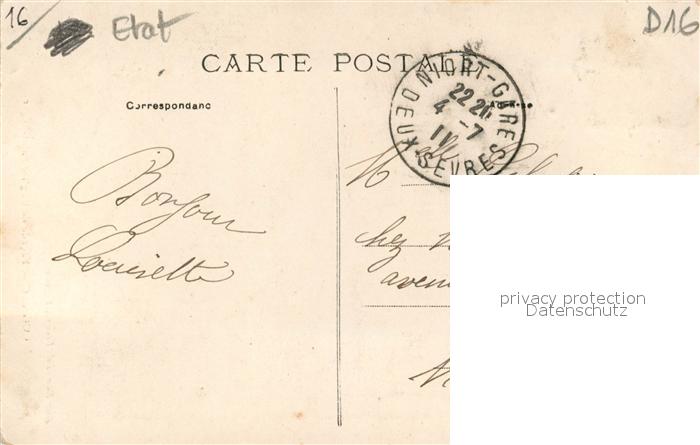 16
Etat
D16
CARTE POSTALE
Correspondanc
NIORT-GARE
22 20
4 -7
11
DEUX-SEVRES
M
Bonjour
Chez
Louisette
aven
privacy protection
Datenschutz